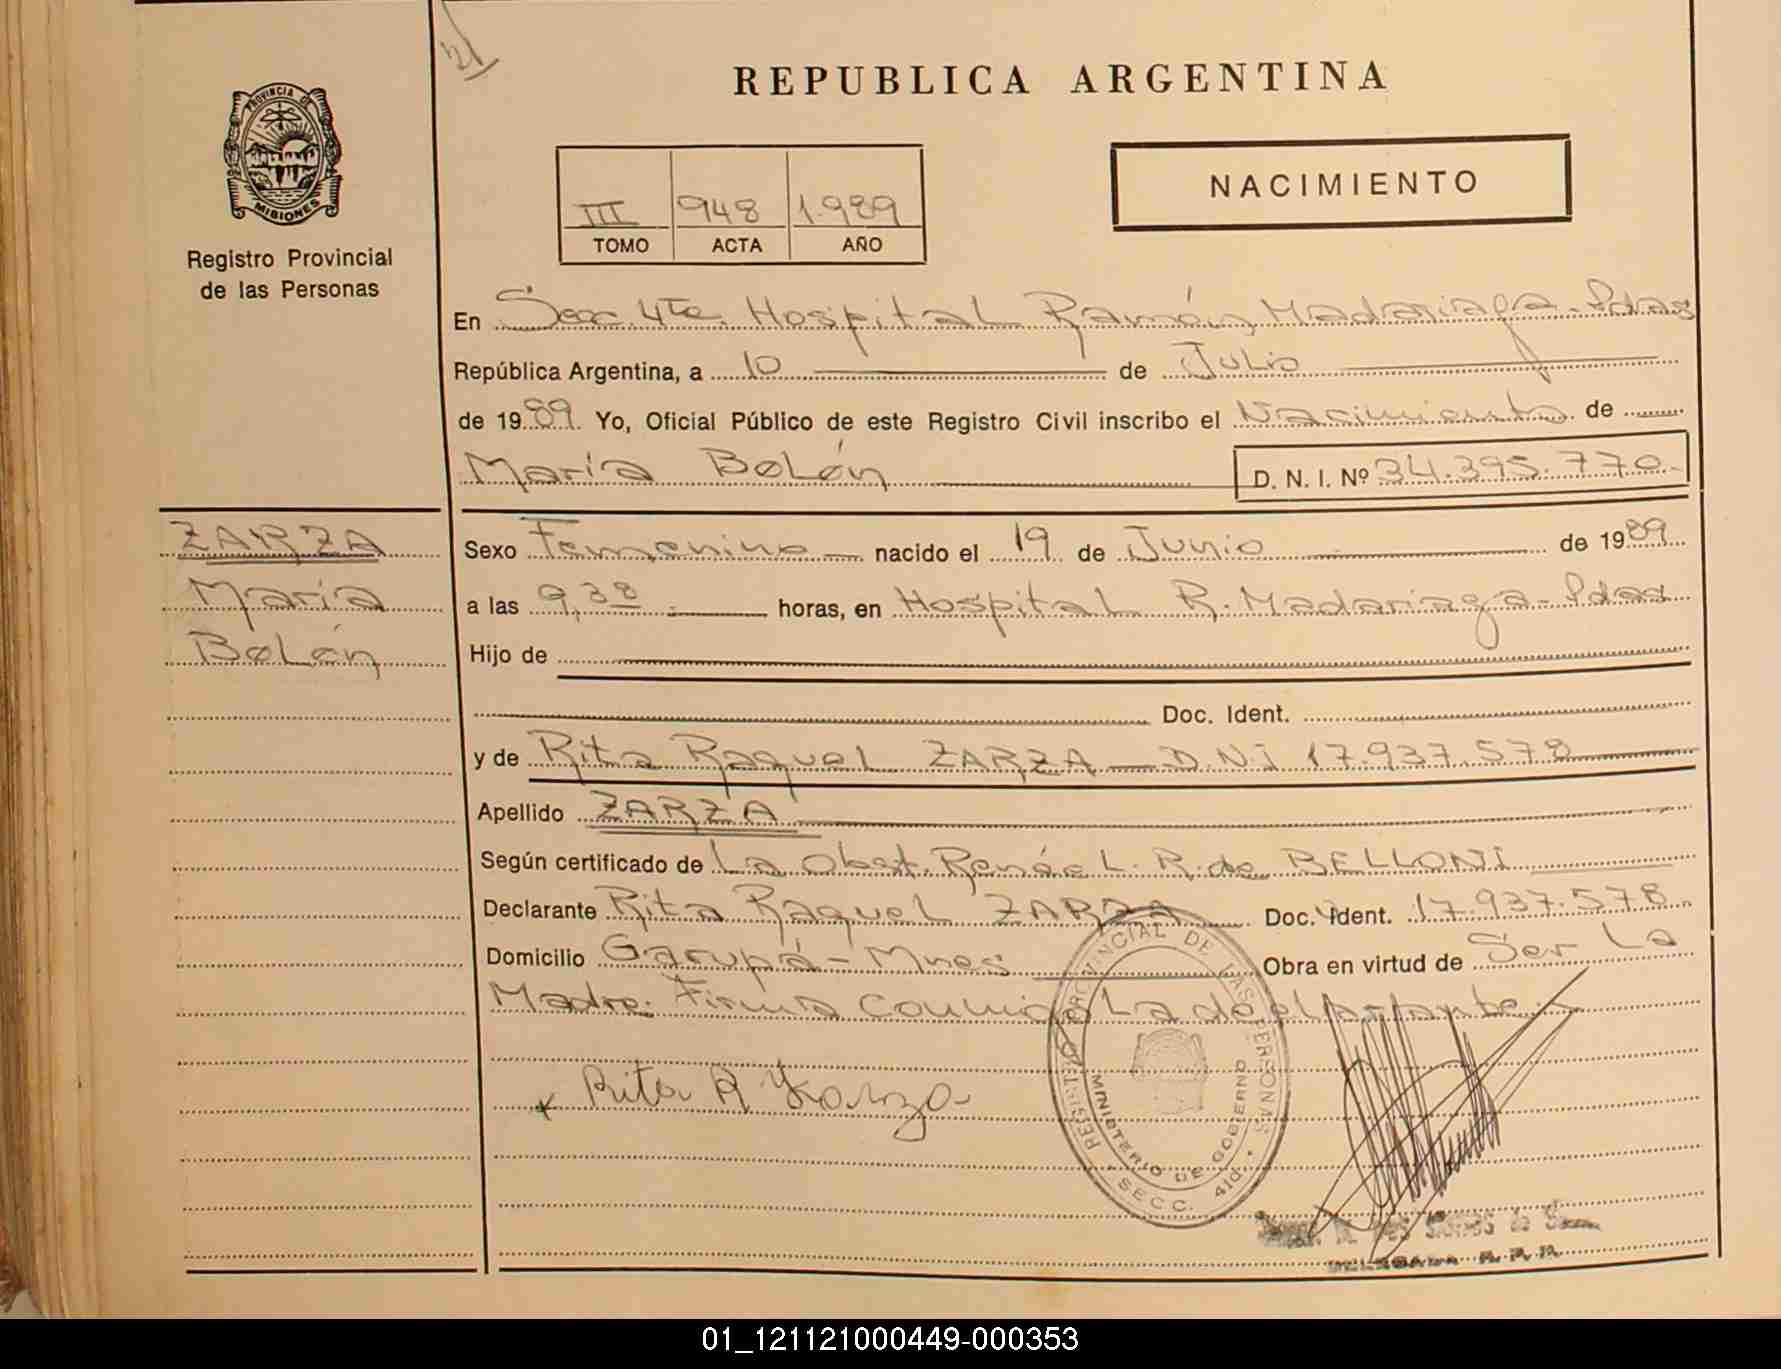 21
REPUBLICA ARGENTINA
PROVINCIA DE
MISIONES
NACIMIENTO
III 948 1.989
TOMO ACTA AÑO
Registro Provincial
de las Personas
En Secc. 4ta. Hospital Ramón Madariaga - Pdas
República Argentina, a 10 de Julio
de 1989. Yo, Oficial Público de este Registro Civil inscribo el Nacimiento de
María Belén D. N. I. Nº 34.395.770.-
ZARZA
María
Belén
Sexo Femenino nacido el 19 de Junio de 1989
a las 9,38 horas, en Hospital R. Madariaga - Pdas
Hijo de
Doc. Ident.
y de Rita Raquel ZARZA — D.N.I 17.937.578
Apellido ZARZA
Según certificado de La Obst. Renée L. R. de BELLONI
Declarante Rita Raquel ZARZA Doc. Ident. 17.937.578
Domicilio Garupá - Mnes Obra en virtud de Ser La
Madre. Firma conmigo La declarante.
Rita R Zarza
REGISTRO PROVINCIAL DE LAS PERSONAS
MINISTERIO DE GOBIERNO
SECC. 4ta.
01_121121000449-000353